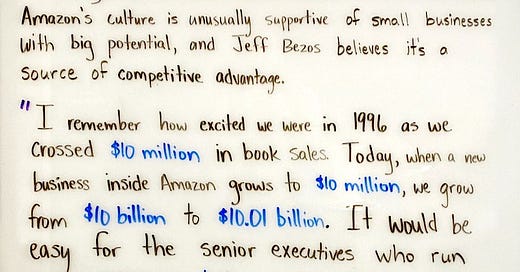 Amazon's culture is unusually supportive of small businesses
with big potential, and Jeff Bezos believes it's a
source of competitive advantage.
"I remember how excited we were in 1996 as we
crossed $10 million in book sales. Today, when a new
business inside Amazon grows to $10 million, we grow
from $10 billion to $10.01 billion. It would be
easy for the senior executives who run